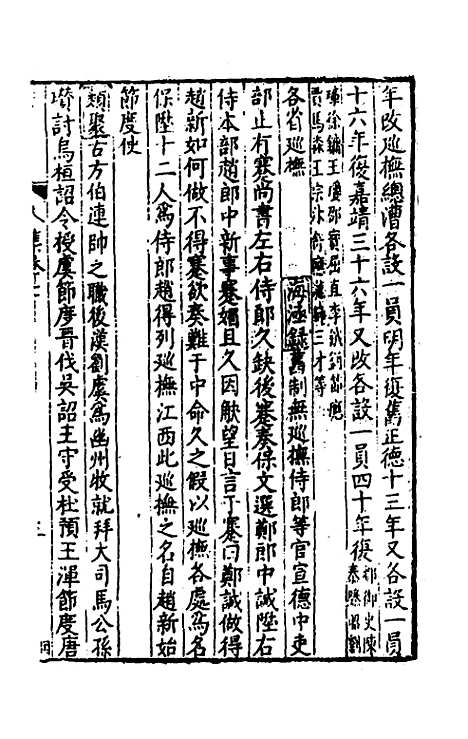 年改巡撫總漕各設一員明年復舊正德十三年又各設一員
十六年復嘉靖三十六年又改各設一員四十年復都御史陳
瓊徐鏞王瓊邵寶屈直李鉞
賈馬森王宗沐三才等
各省巡撫 海涵錄舊制無巡撫侍郎等官宣德中吏
部止有蹇尚書左右侍郎久缺後蹇奏保文選鄭郎中誠陞右
侍本部趙郎中新事蹇媚且久因觖望日言于蹇曰鄭誠做得
趙新如何做不得蹇欲奏難于中命久之假以巡撫各處為名
保陞十二人為侍郎趙得列巡撫江西此巡撫之名自趙新始
節度使
類聚古方伯連帥之職後漢劉虞為幽州牧就拜大司馬公孫
瓚討烏桓詔令授虞節度晉伐吳詔王守受杜預王渾節度唐